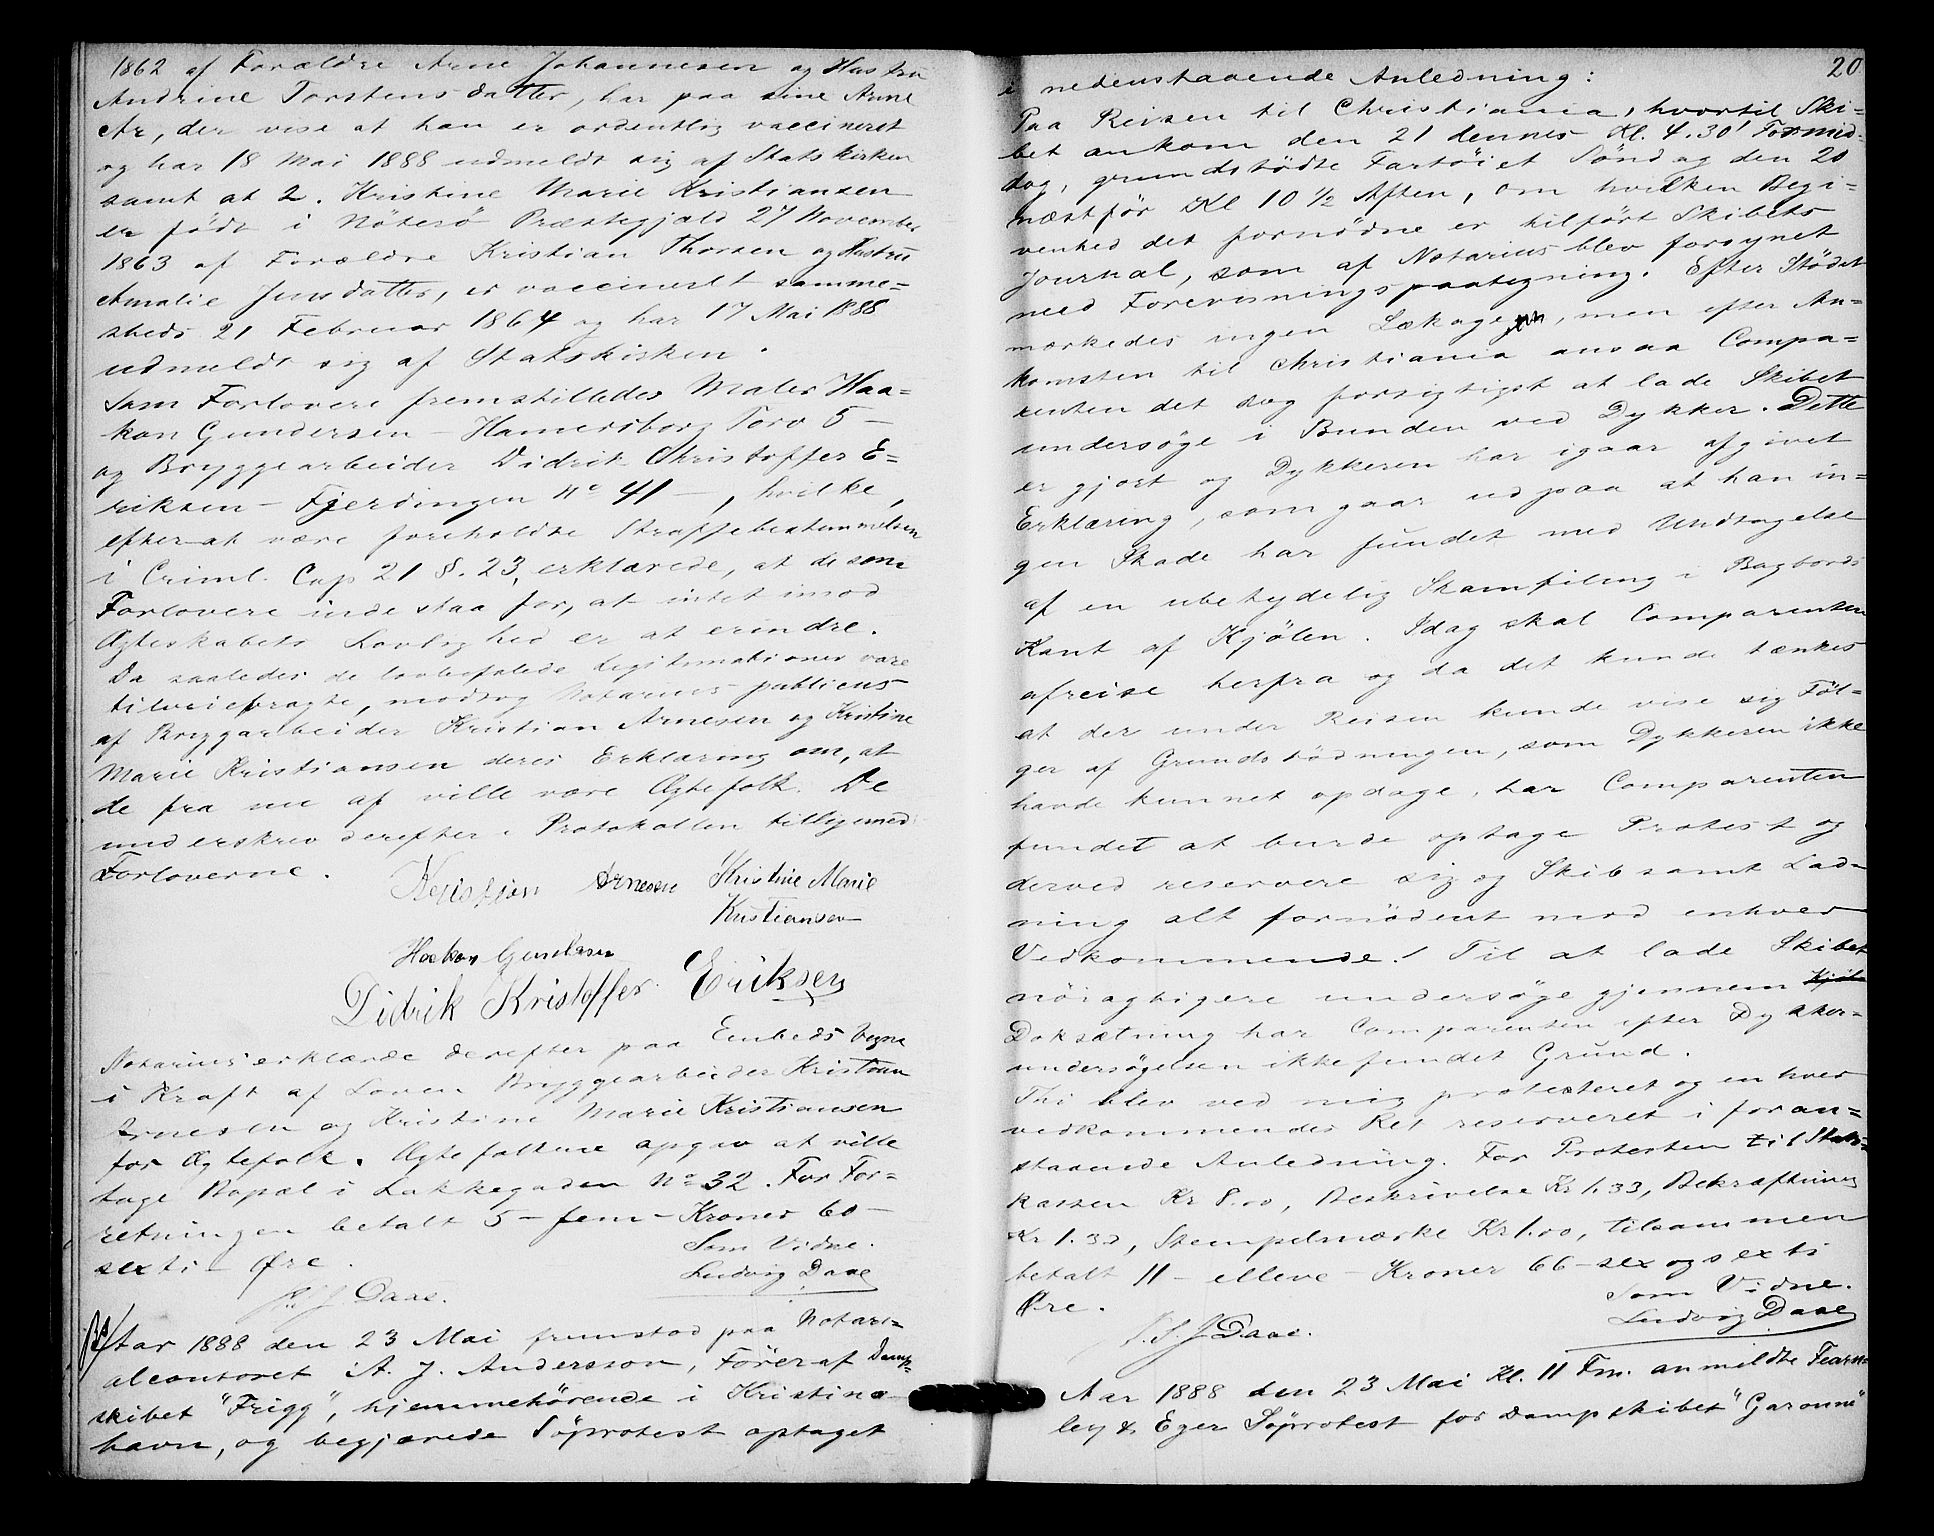 1862 af Forældre Arne Johannesen og Hustru
Andrine Torstensdatter, har paa sine Arme
Ar, der vise at han er ordentlig vaccineret
og har 18 Mai 1888 udmeldt sig af Statskirken
samt at 2. Kristine Marie Kristiansen
er født i Nøterø Præstegjæld 27 November
1863 af Forældre Kristian Thorsen og Hustru
Amalie Jensdatter, er vaccineret samme=
steds 21 Februar 1864 og har 17 Mai 1888
udmeldt sig af Statskirken.
Som Forlovere fremstilledes Maler Haa=
kon Gundersen – Hamersborg Torv 5 –
og Bryggearbeider Didrik Christoffer E=
riksen – Fjerdingen No 41 –, hvilke,
efter at være foreholdte Straffebestemmelsen
i Criml. Cap 21 §. 23, erklærede, at de som
Forlovere indestaa for, at intet imod
Ægteskabets Lovlighed er at erindre.
Da saaledes de lovbefalede Legitimationer vare
tilveiebragte, modtog Notarius publicus
af Bryggarbeider Kristian Arnesen og Kristine
Marie Kristiansen deres Erklæring om, at
de fra nu af ville være Ægtefolk. De
underskrev derefter i Protokollen tilligemed
Forloverne.
Kristian Arnesen Kristine Marie
Kristiansen
Haakon Gundersen
Didrik Kristoffer Eriksen
Notarius erklærede derefter paa Embeds Vegne
i Kraft af Loven Bryggearbeider Kristian
Arnesen og Kristine Marie Kristiansen
for Ægtefolk. Ægtefolkene opgav at ville
tage Bopæl i Lakkegaden No 32. For For=
retningen betalt 5 – fem – Kroner 60 –
sexti – Øre.
Som Vidne.
Ludvig Daae
J. Daae.
Aar 1888 den 23 Mai fremstod paa Notari=
alcontoret A. J. Andersson, Fører af Damp=
skibet "Frigg", hjemmehørende i Kristina
havn, og begjærede Søprotest optaget
20
i nedenstaaende Anledning:
Paa Reisen til Christiania, hvortil Ski=
bet ankom den 21 dennes Kl. 4.30' Formid=
dag, grundstødte Fartøiet Søndag den 20
næstfør Kl 10 1/2 Aften, om hvilken Begi=
venhed det fornødne er tilført Skibets
Journal, som af Notarius blev forsynet
med Forevisningspaategning. Efter Stødet
mærkedes ingen Lækage, men efter An=
komsten til Christiania ansaa Compa=
renten det dog forsigtigst at lade Skibet
undersøge i Bunden ved Dykker. Dette
er gjort og Dykkeren har igaar afgivet
Erklæring, som gaar ud paa at han in=
gen Skade har fundet med Undtagelse
af en ubetydelig Skamfiling i Bagbords
Kant af Kjølen. Idag skal Comparenten
afreise herfra og da det kunde tænkes
at der under Reisen kunde vise sig Føl=
ger af Grundstødningen, som Dykkeren ikke
havde kunnet opdage, har Comparenten
fundet at burde optage Protest og
derved reservere sig og Skib samt Lad=
ning alt fornødent mod enhver
Vedkommende. Til at lade Skibet
nöiagtigere undersøge gjennem
Doksætning har Comparenten efter Dykker=
undersøgelsen ikke fundet Grund.
Thi blev ved mig protesteret og en hver
vedkommendes Ret reserveret i foran=
staaende Anledning. For Protesten til Stats=
kassen Kr 8.00, Beskrivelse Kr 1.33, Bekræftning
Kr 1.33, Stempelmærke Kr 1.00, tilsammen
betalt 11 – elleve – Kroner 66 – sex og sexti
Øre.
Som Vidne.
Ludvig Daae
J. Daae.
Aar 1888 den 23 Mai Kl. 11 Fm. anmeldte Fearn=
ley & Eger Søprotest for Dampskibet "Garonne"